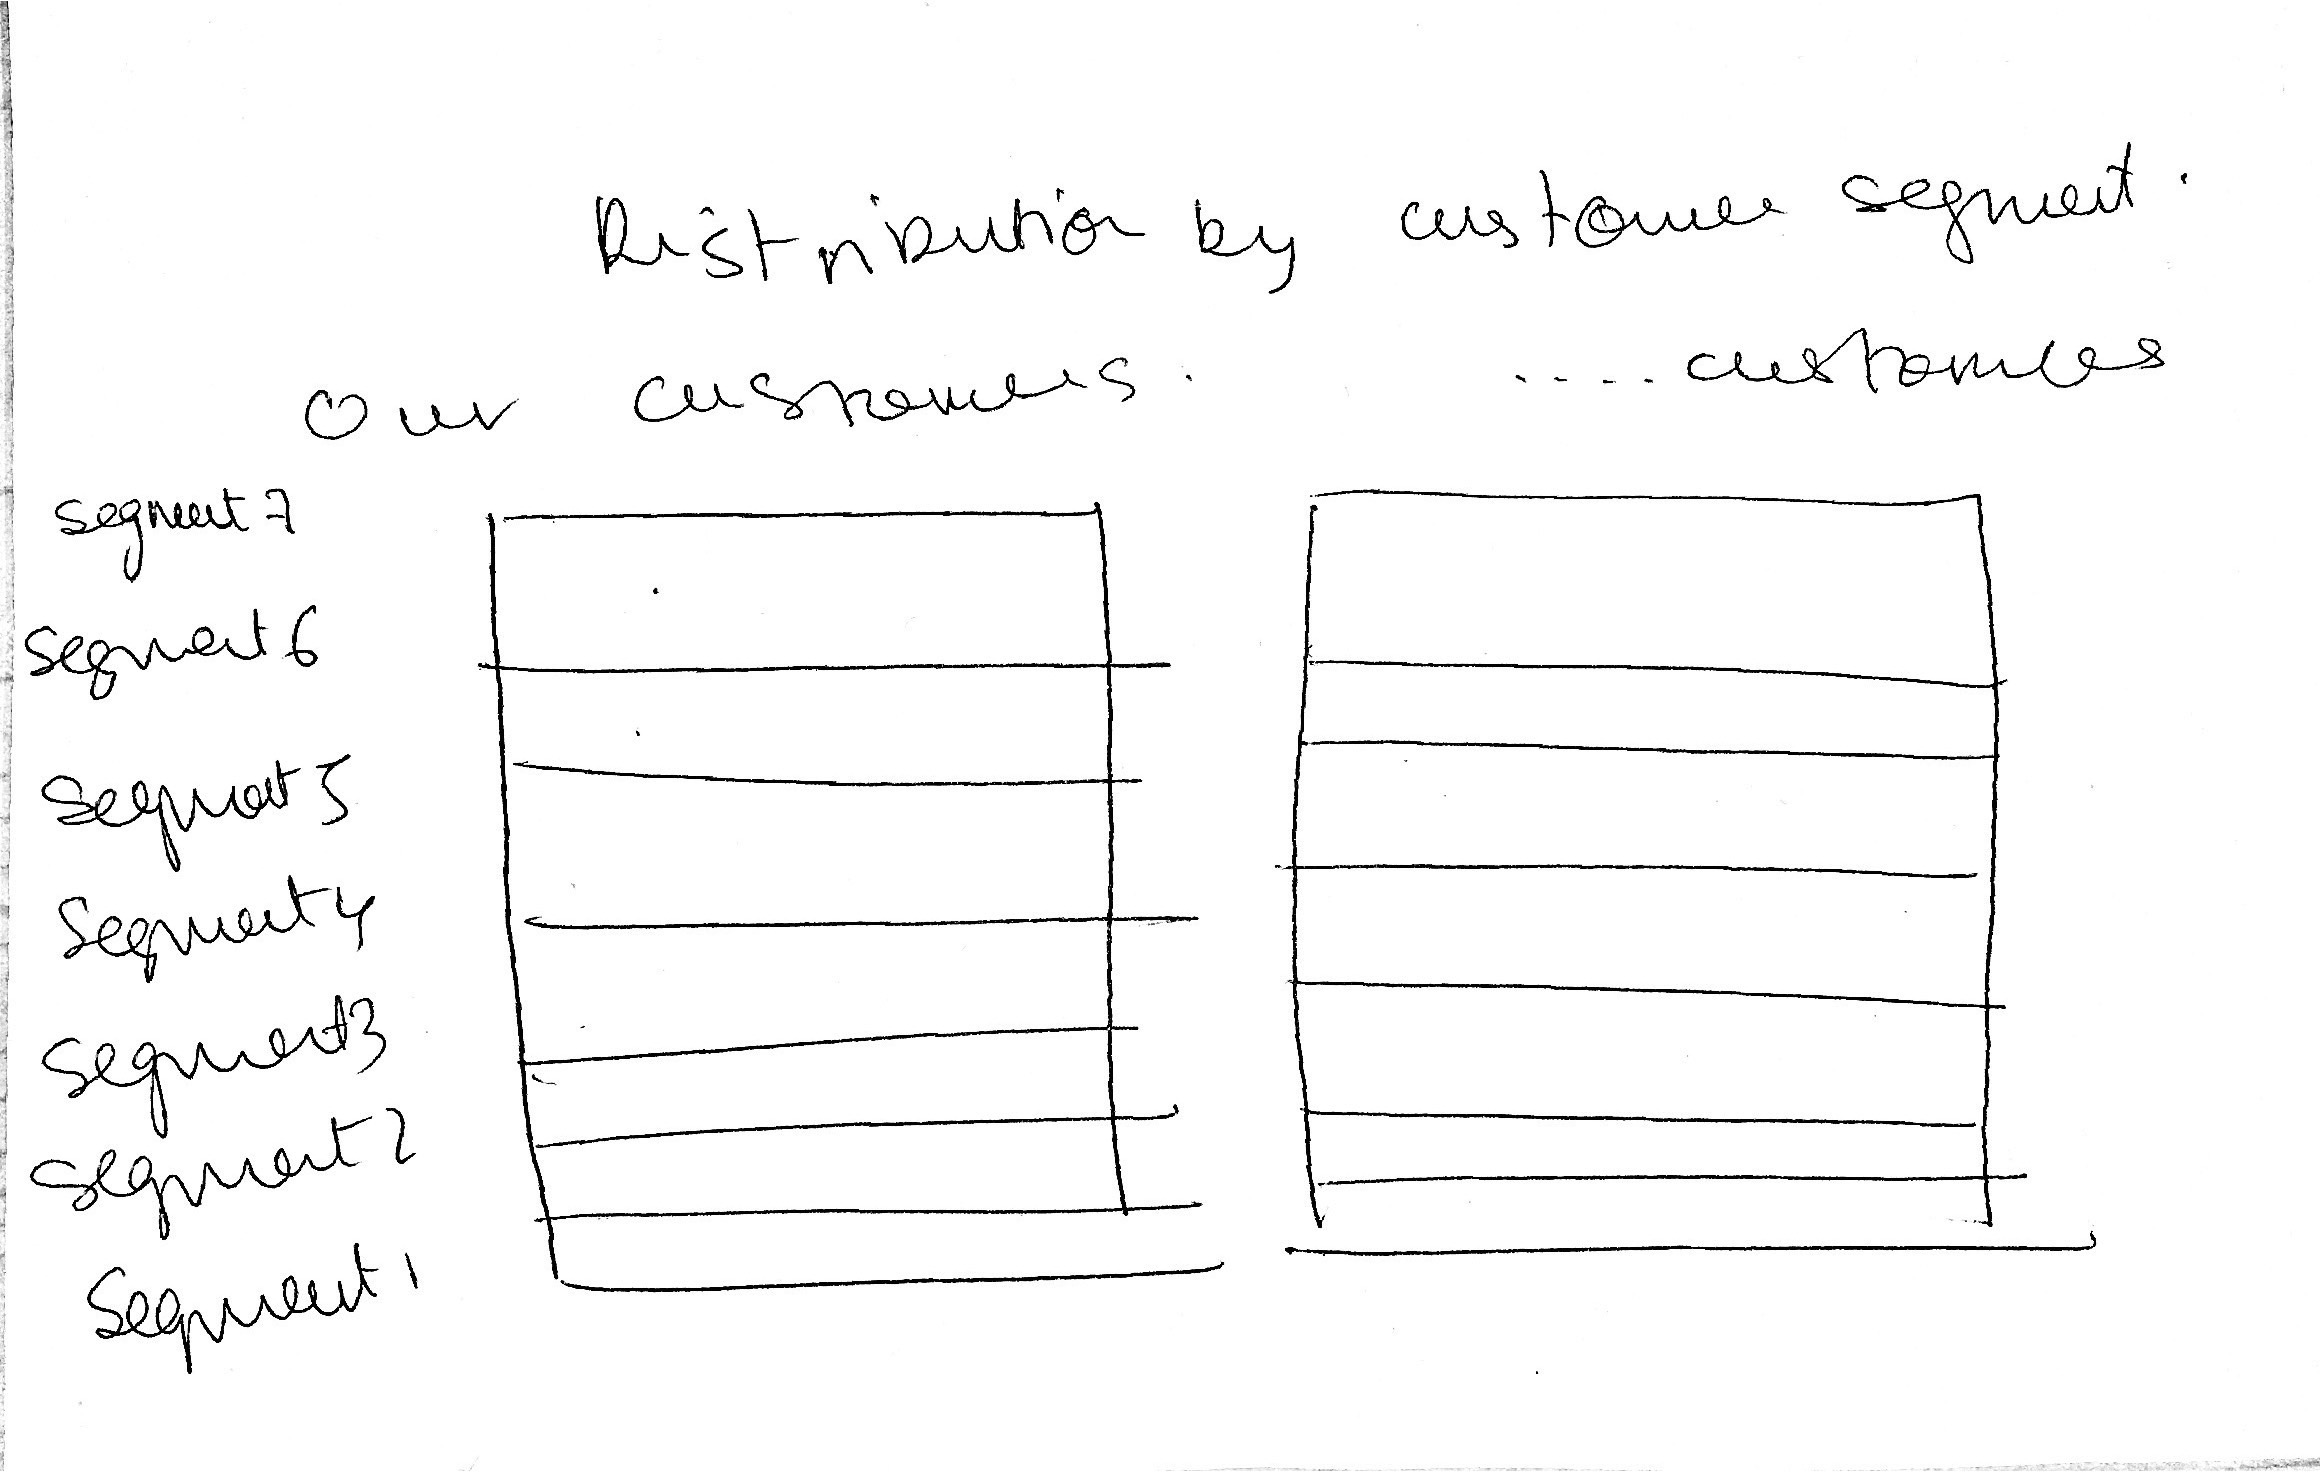 Distribution by customer segment.
Our customers. .... customers
segment 7
segment 6
segment 5
segment 4
segment 3
segment 2
segment 1